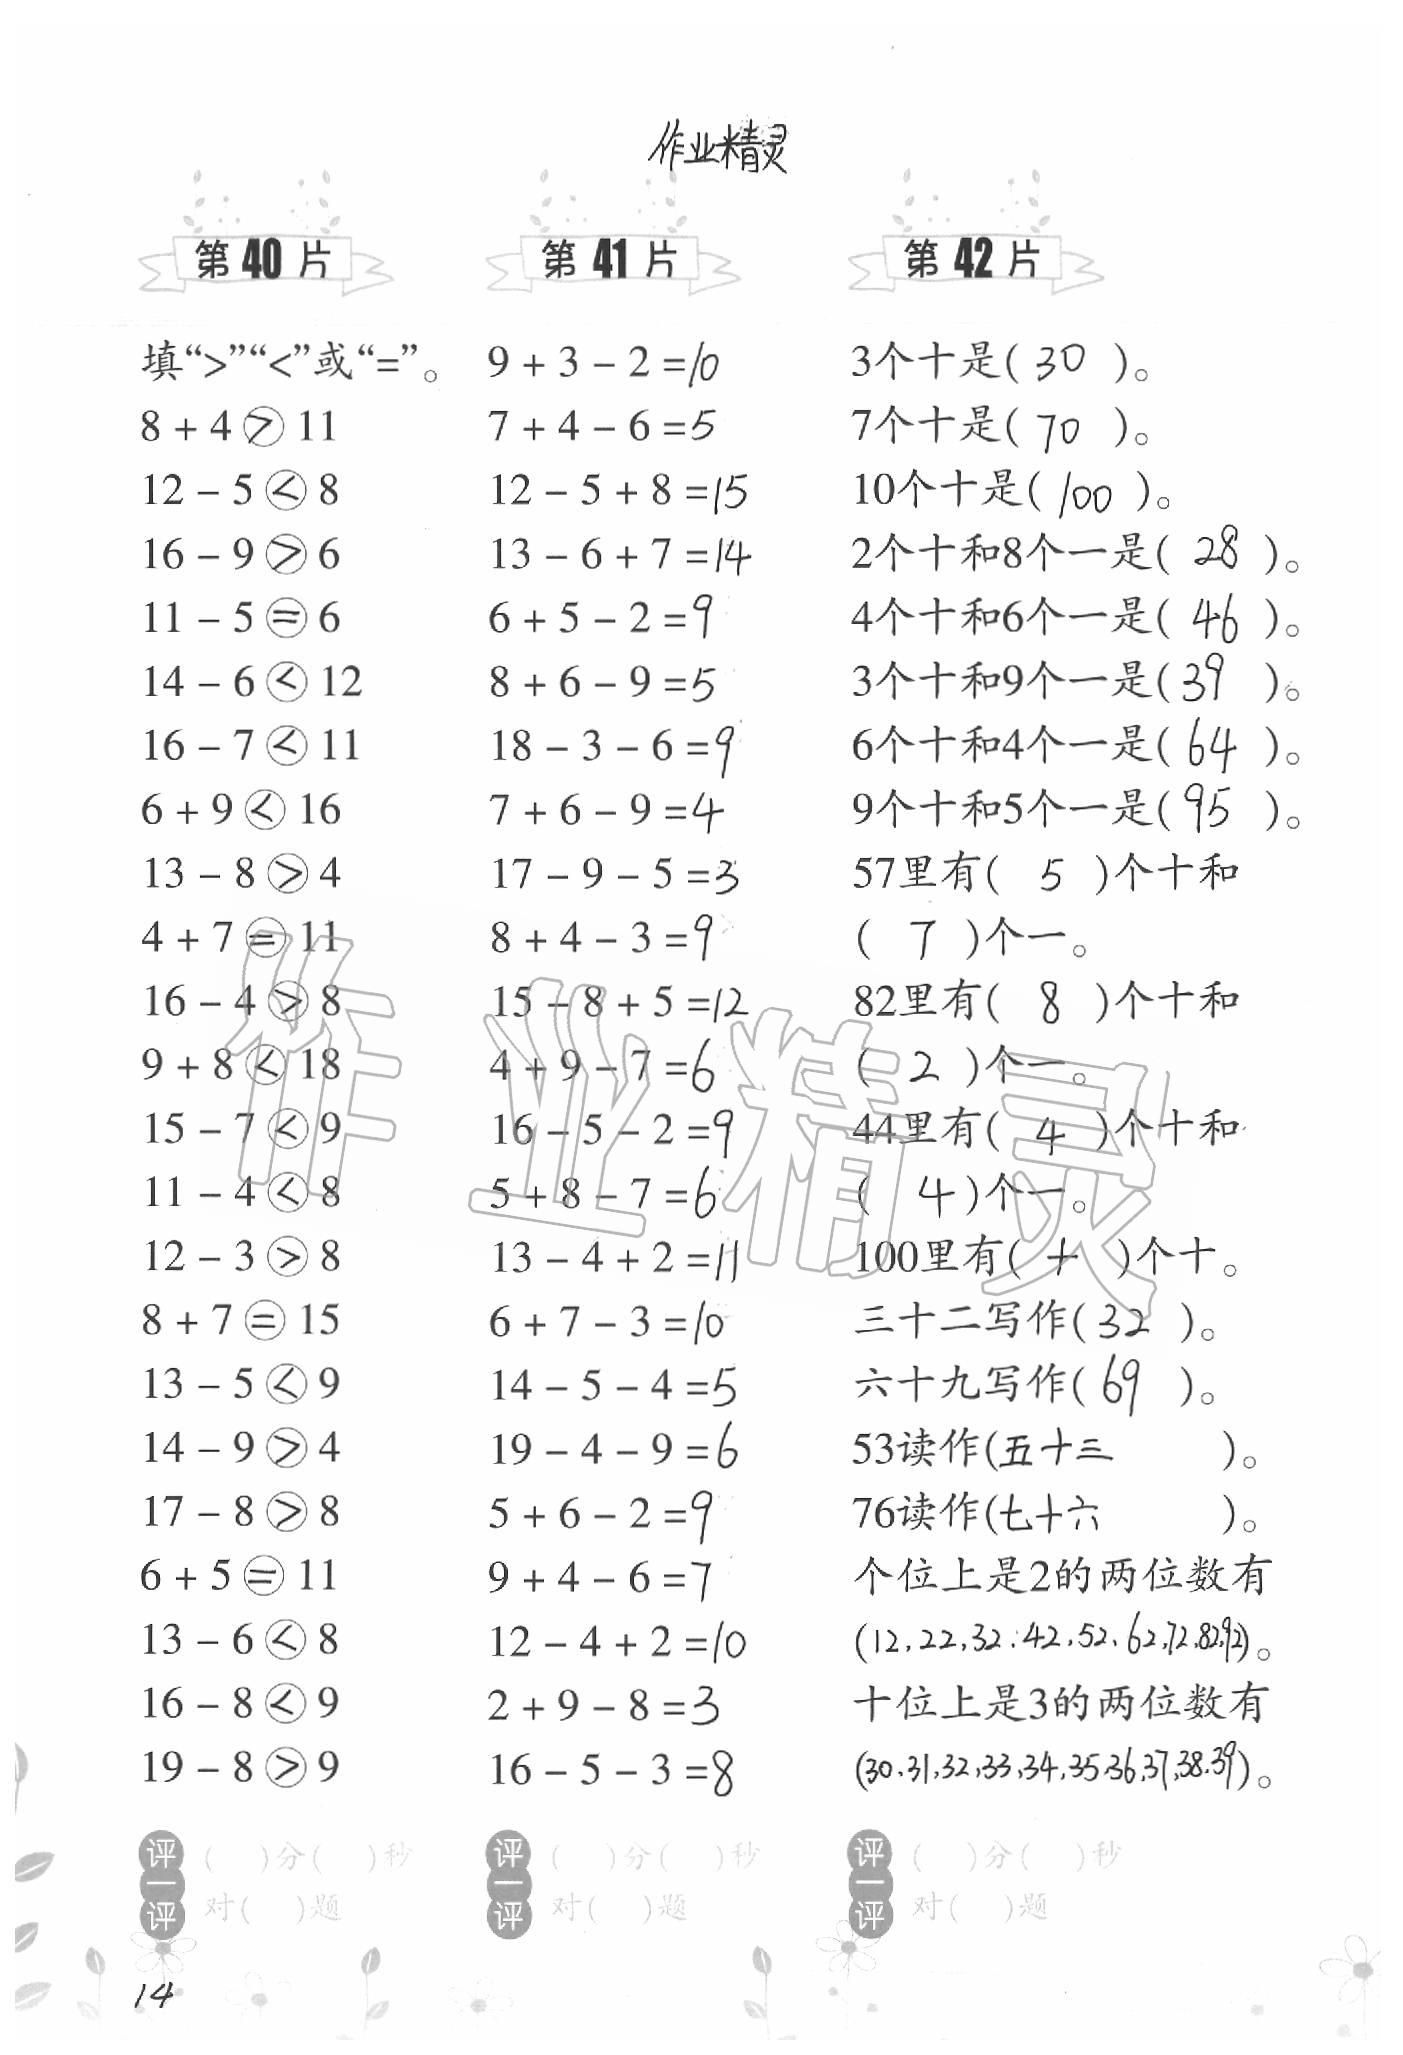 作业精灵
第 40 片
填“>”“<”或“=”。
8 + 4 > 11
12 − 5 < 8
16 − 9 > 6
11 − 5 = 6
14 − 6 < 12
16 − 7 < 11
6 + 9 < 16
13 − 8 > 4
4 + 7 = 11
16 − 4 > 8
9 + 8 < 18
15 − 7 < 9
11 − 4 < 8
12 − 3 > 8
8 + 7 = 15
13 − 5 < 9
14 − 9 > 4
17 − 8 > 8
6 + 5 = 11
13 − 6 < 8
16 − 8 < 9
19 − 8 > 9
评一评
( )分( )秒
对( )题
第 41 片
9 + 3 − 2 =10
7 + 4 − 6 =5
12 − 5 + 8 =15
13 − 6 + 7 =14
6 + 5 − 2 =9
8 + 6 − 9 =5
18 − 3 − 6 =9
7 + 6 − 9 =4
17 − 9 − 5 =3
8 + 4 − 3 =9
15 − 8 + 5 =12
4 + 9 − 7 =6
16 − 5 − 2 =9
5 + 8 − 7 =6
13 − 4 + 2 =11
6 + 7 − 3 =10
14 − 5 − 4 =5
19 − 4 − 9 =6
5 + 6 − 2 =9
9 + 4 − 6 =7
12 − 4 + 2 =10
2 + 9 − 8 =3
16 − 5 − 3 =8
评一评
( )分( )秒
对( )题
第 42 片
3个十是( 30 )。
7个十是( 70 )。
10个十是( 100 )。
2个十和8个一是( 28 )。
4个十和6个一是( 46 )。
3个十和9个一是( 39 )。
6个十和4个一是( 64 )。
9个十和5个一是( 95 )。
57里有( 5 )个十和
( 7 )个一。
82里有( 8 )个十和
( 2 )个一。
44里有( 4 )个十和
( 4 )个一。
100里有( 十 )个十。
三十二写作( 32 )。
六十九写作( 69 )。
53读作(五十三 )。
76读作(七十六 )。
个位上是2的两位数有
(12,22,32,42,52,62,72,82,92)。
十位上是3的两位数有
(30,31,32,33,34,35,36,37,38,39)。
评一评
( )分( )秒
对( )题
作业精灵
14